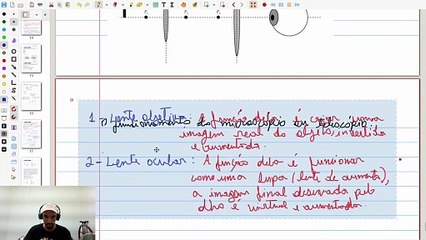 1 - Lente objetiva: A função dela é criar uma
o funcionamento do microscópio ou telescópio.
imagem real do objeto, invertida
e aumentada.
2 - Lente ocular: A função dela é funcionar
como uma lupa (lente de aumento),
a imagem final observada pelo
olho é virtual e aumentada.